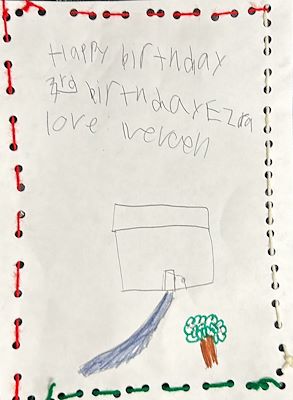 Happy birthday
3rd birthday Ezra
love